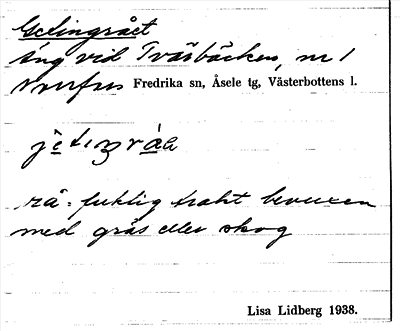 Getingråɛt
äng vid Tväsbäcken, nr 1
Norrfors Fredrika sn, Åsele tg, Västerbottens l.
rå = fuktig trakt bevuxen
med gräs eller skog
Lisa Lidberg 1938.